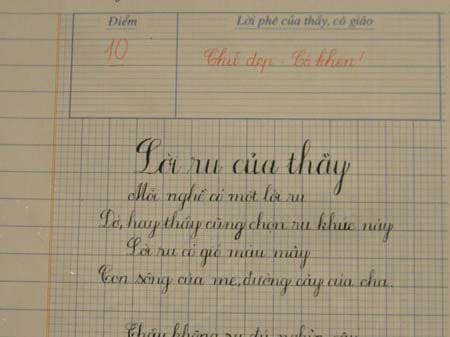 Điểm
Lời phê của thầy, cô giáo
10
Chữ đẹp - Cô khen!
Lời ru của thầy
Mỗi nghề có một lời ru
Dở, hay thầy cũng chọn ru khúc này
Lời ru có gió màu mây
Con sông của mẹ, đường cày của cha.
Thầy không ru đủ nghìn câu